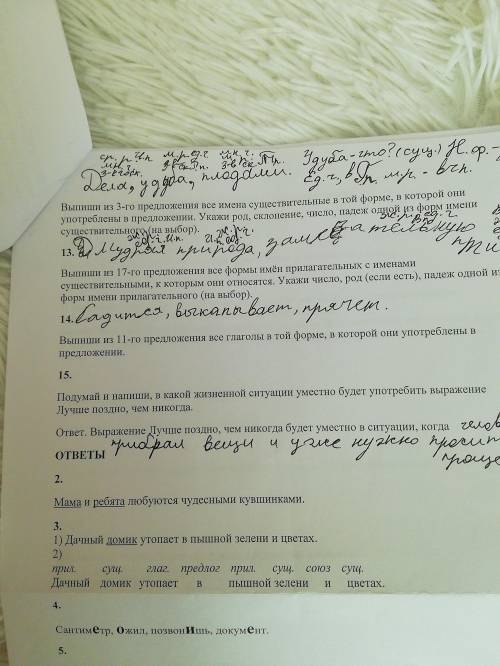 ср. р. мн. ч. м.р. ед.ч. мн. ч.
Дела, у дуба, плодами. У дуба - что? (сущ.) Н.ф. -
ед.ч, в Рп. м.р. -
Выпиши из 3-го предложения все имена существительные в той форме, в которой они
употреблены в предложении. Укажи род, склонение, число, падеж одной из форм имени
существительного (на выбор).
13. Мудрая природа, замечательную
Выпиши из 17-го предложения все формы имён прилагательных с именами
существительными, к которым они относятся. Укажи число, род (если есть), падеж одной из
форм имени прилагательного (на выбор).
14. Садится, выкапывает, прячет.
Выпиши из 11-го предложения все глаголы в той форме, в которой они употреблены в
предложении.
15.
Подумай и напиши, в какой жизненной ситуации уместно будет употребить выражение
Лучше поздно, чем никогда.
Ответ. Выражение Лучше поздно, чем никогда будет уместно в ситуации, когда
прибрал вещи и уже нужно
ОТВЕТЫ
2.
Мама и ребята любуются чудесными кувшинками.
3.
1) Дачный домик утопает в пышной зелени и цветах.
2)
прил. сущ. глаг. предлог прил. сущ. союз сущ.
Дачный домик утопает в пышной зелени и цветах.
4.
Сантиметр, ожил, позвонишь, документ.
5.